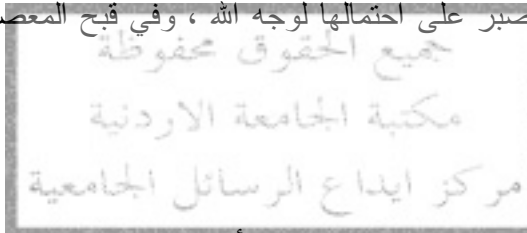 صبر على احتمالها لوجه الله ، وفي قبح المعص
جميع الحقوق محفوظة
مكتبة الجامعة الاردنية
مركز ايداع الرسائل الجامعية